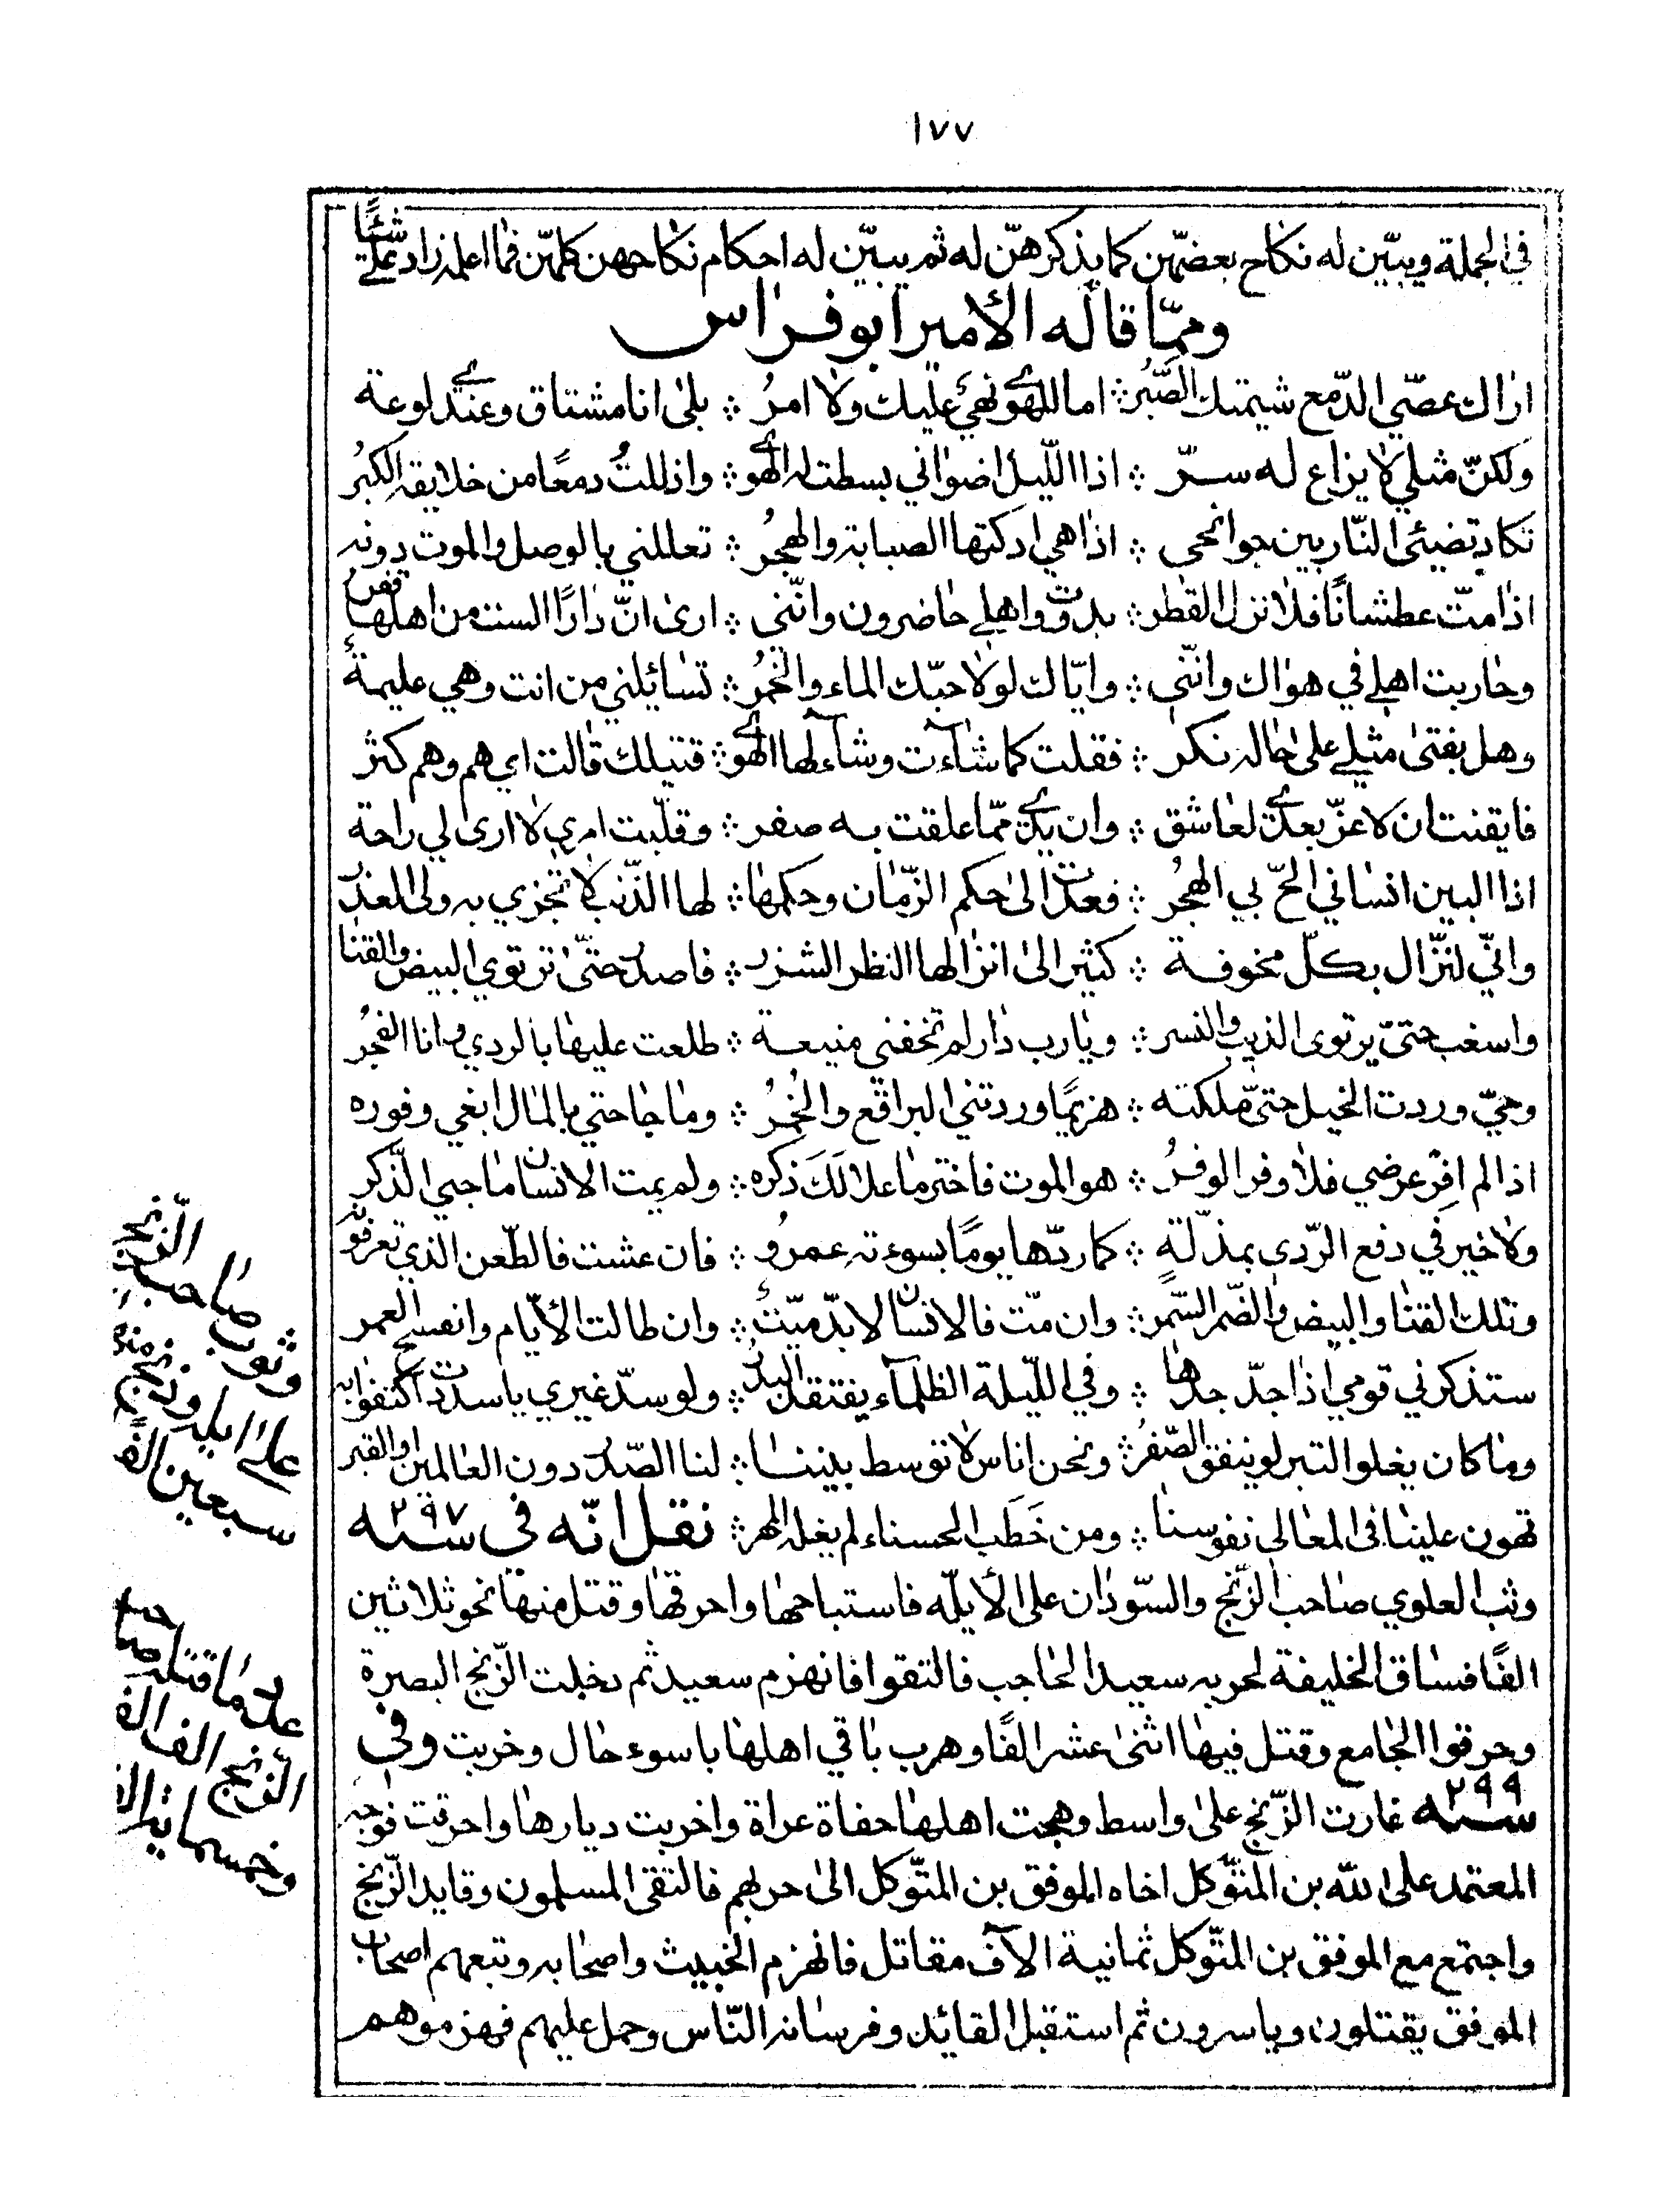 ١٧٧
في الجملة ويبيّن له نكاح بعضهن كما يذكرهنّ له ثم يبيّن له احكام نكاحهن كلهنّ فما اعلم زاد شيئًا
وممّا قاله الأمير ابو فراس
اراك عصّي الدّمع شيمتك الصّبرُ ؞ اما للهوي نهيٌ عليك ولا امرُ ؞ بلى انا مشتاق وعندي لوعة
ولكنّ مثلي لا يزاع له سرّ ؞ اذا اللّيل اضواني بسطت له الهوي ؞ واذللتُ دمعًا من خلايقه الكبرُ
تكاد تضيئ النّار بين جوانحي ؞ اذا هي اذكتها الصبابة والهجرُ ؞ تعللني بالوصل والموت دونه
اذا متّ عطشانًا فلا نزل القطر ؞ بدوت واهلي حاضرون وانّني ؞ ارى انّ دارًا الست من اهلها قفر
وحاربت اهلي في هواك وانّني ؞ وايّاك لولا حبّك الماء والخمرُ ؞ تسائلني من انت وهي عليمةٌ
وهل بفتى مثلي على حاله نكر ؞ فقلت كما شاءت وشاء لها الهوي ؞ قتيلك قالت ايهم وهم كثر
فايقنت ان لا عزّ بعدي لعاشق ؞ وان يدي ممّا علقت به صفر ؞ وقلّبت امري لا ارى لي راحة
اذا البين انساني الحّ بي الهجرُ ؞ فعدت الى حكم الزّمان وحكمها ؞ لها الذّنب لا تجزي به ولى العذر
وانّي لنزّال بكلّ مخوفة ؞ كثير الى انزالها النظر الشزر ؞ فاصدى حتّى ترتوي البيض والقنا
واسغب حتىّ يرتوى الذيب والنسر ؞ ويا رب دار لم تخفني منيعة ؞ طلعت عليها بالردي وانا الفجرُ
وحيّ وردت الخيل حتىّ ملكته ؞ هزيمًا وردتني البراقع والخُمرُ ؞ وما جاحتي بالمال ابغي وفوره
اذا لم افِرّ عرضي فلا وفر الوفرُ ؞ هو الموت فاختر ما علا لَكَ ذكره ؞ ولم يمت الانسان ما حيي الذّكر
ولا خير في دفع الرّدي بمذلّةٍ ؞ كما ردّها يومًا بسوءته عمروُ ؞ فان عشت فالطّعن الذي تعرفونه
وتلك القنا والبيض والضّمر السّمر ؞ وان متّ فالانسان لابدّ ميّتٌ ؞ وان طالت الأيّام وانفسح العمر
ستذكرني قومي اذا جدّ جدها ؞ وفي اللّيلة الظلماء يفتقد البدرُ ؞ ولو سدّ غيري ما سددت اكتفوا به
وما كان يغلوا التبر لو ينفق الصّفرُ ؞ ونحن اناس لا توسط بيننا ؞ لنا الصّدر دون العالمين او القبر
تهون علينا في المعالي نفوسنا ؞ ومن خَطَب الحسناء لم يغله المهر ؞ نقل انّه في سنه ٢٩٧
وثب العلوي صاحب الزّنج والسّودان على الأيلّه فاستباحها واحرقها وقتل منها نحو ثلاثين
الفًا فساق الخليفة لحربه سعيد الحاجب فالتقوا فانهزم سعيد ثم دخلت الزّنج البصرة
وحرقوا الجامع وقتل فيها اثنى عشر الفًا وهرب باقي اهلها باسوء حال وخربت وفي
سنه ٢٩٩ غارت الزّنج على واسط وهجت اهلها حفاة عراة واخربت ديارها واحرقت فوجه
المعتمد على الله بن المتوّكل اخاه الموفق بن المتّوكل الى حربهم فالتقى المسلمون وقايد الزّنج
واجتمع مع الموفق بن المتّوكل ثمانية الآف مقاتل فانهزم الخبيث واصحابه وتبعهم اصحاب
الموفق يقتلون وياسرون ثم استقبل القائد وفرسانه النّاس وحمل عليهم فهزموهم
وثوب صاحب الزّنج
على ايله
سبعين الف
عدد ما قتله صاحب
الزّنج الف الف
وخمسماية الف